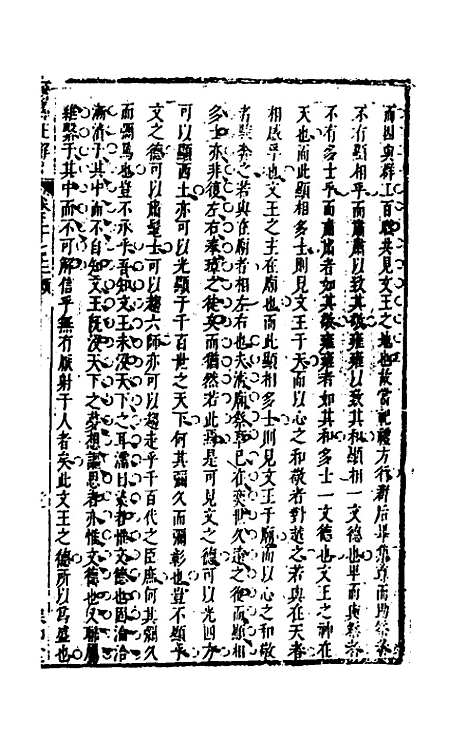 而因與群工百職共見文王之地也故當祀禮方行群后畢
不有顯相乎而肅肅以致其敬雍雍以致其和顯相一文德也畢而與祭者
不有多士乎而肅肅者如其敬雍雍者如其和多士一文德也文王之神在
天也而此顯相多士則見文王于天而以心之和敬者對越之若與在天者
相感乎也文王之主在廟也而此顯相多士則見文王于廟而以心之和敬
者駿奔之若與在廟者相左右也夫清廟祭享已在奕世久遠之後而顯相
多士亦非復左右奉璋之徒矣而猶然若此於是可見文之德可以光四方
可以顯西土亦可以光顯于千百世之天下何其彌久而彌彰也豈不顯乎
文之德可以肅髦士可以趨六師亦可以趨走乎千百代之臣庶何其彌久
而彌篤也豈不承乎吾知文王未沒天下之耳濡目染者惟文德也固淪洽
滿濟于其中而不自知文王既沒天下之夢想謳思者亦惟文德也又聯屬
維繫于其中而不可解信乎無有厭射于人者矣此文王之德所以爲盛也